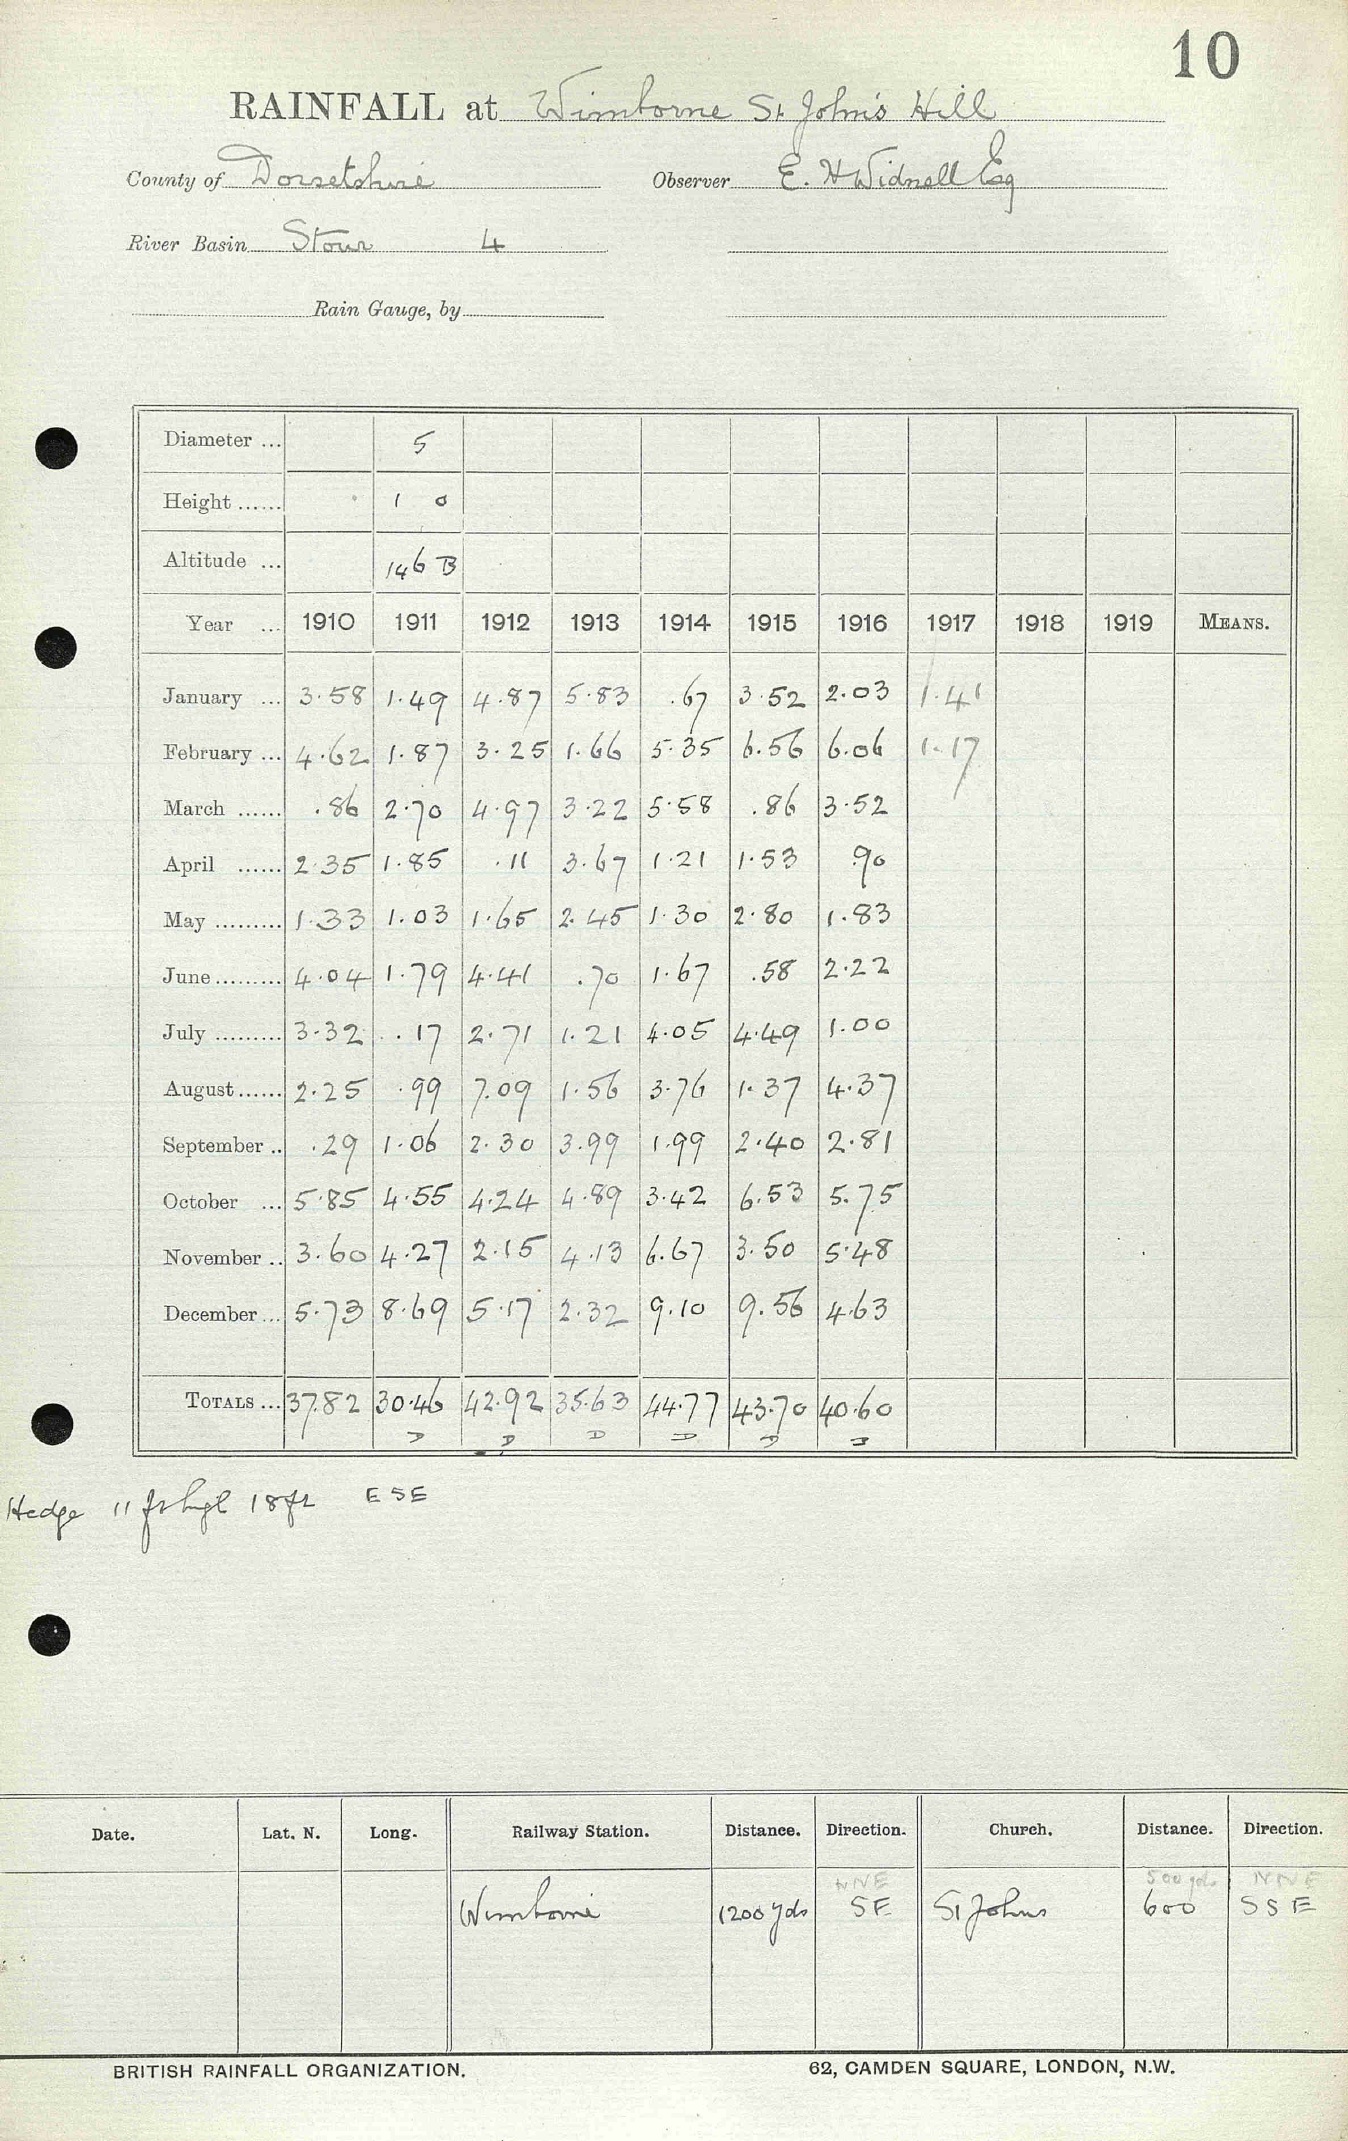 10
RAINFALL at Wimborne St John's Hill
County of Dorsetshire Observer E. H Widnell Esq
River Basin Stour 4
Rain Gauge, by
Diameter ... 5
Height ...... 1 0
Altitude ... 146 B
Year ... 1910 1911 1912 1913 1914 1915 1916 1917 1918 1919 MEANS.
January ... 3.58 1.49 4.87 5.83 .67 3.52 2.03 1.41
February ... 4.62 1.87 3.25 1.66 5.35 6.56 6.06 1.17
March ...... .86 2.70 4.97 3.22 5.58 .86 3.52
April ...... 2.35 1.85 .11 3.67 1.21 1.53 .90
May ......... 1.33 1.03 1.65 2.45 1.30 2.80 1.83
June ......... 4.04 1.79 4.41 .70 1.67 .58 2.22
July ......... 3.32 .17 2.71 1.21 4.05 4.49 1.00
August ...... 2.25 .99 7.09 1.56 3.76 1.37 4.37
September .. .29 1.06 2.30 3.99 1.99 2.40 2.81
October ... 5.85 4.55 4.24 4.89 3.42 6.53 5.75
November .. 3.60 4.27 2.15 4.13 6.67 3.50 5.48
December ... 5.73 8.69 5.17 2.32 9.10 9.56 4.63
TOTALS ... 37.82 30.46 42.92 35.63 44.77 43.70 40.60
D D D D D B
Hedge 11 ft high 18 ft ESE
Date. Lat. N. Long. Railway Station. Distance. Direction. Church. Distance. Direction.
NNE 500 yds NNE
Wimborne 1200 yds SE St Johns 600 SSE
BRITISH RAINFALL ORGANIZATION. 62, CAMDEN SQUARE, LONDON, N.W.